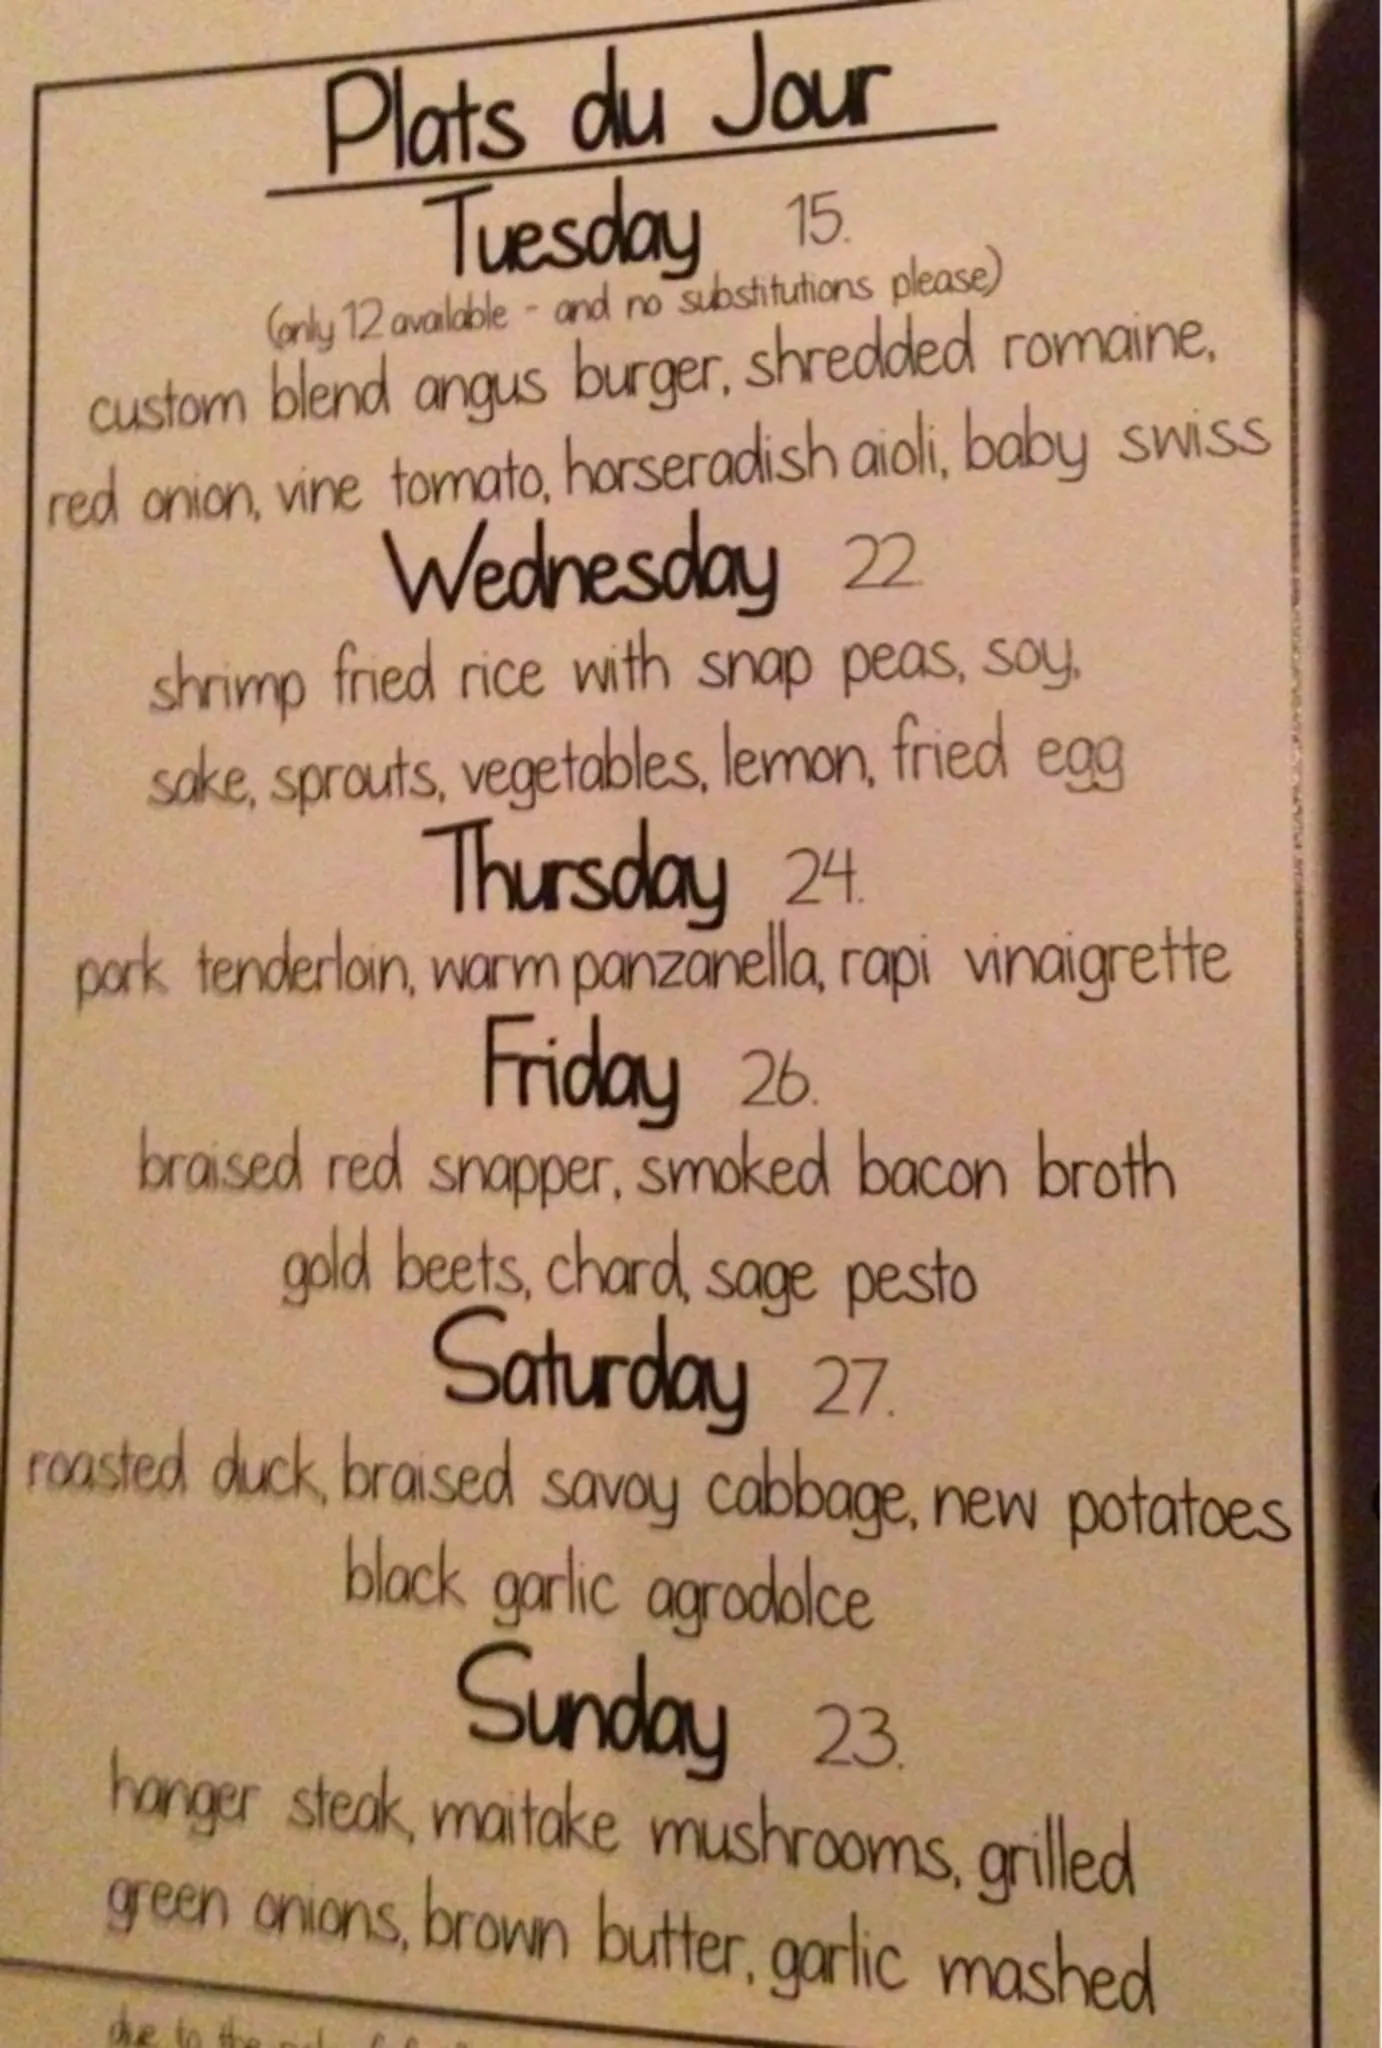 Plats du Jour
Tuesday 15.
(only 12 available - and no substitutions please)
custom blend angus burger, shredded romaine,
red onion, vine tomato, horseradish aioli, baby swiss
Wednesday 22
shrimp fried rice with snap peas, soy,
sake, sprouts, vegetables, lemon, fried egg
Thursday 24.
pork tenderloin, warm panzanella, rapi vinaigrette
Friday 26.
braised red snapper, smoked bacon broth
gold beets, chard, sage pesto
Saturday 27.
roasted duck, braised savoy cabbage, new potatoes
black garlic agrodolce
Sunday 23.
hanger steak, maitake mushrooms, grilled
green onions, brown butter, garlic mashed
due to the